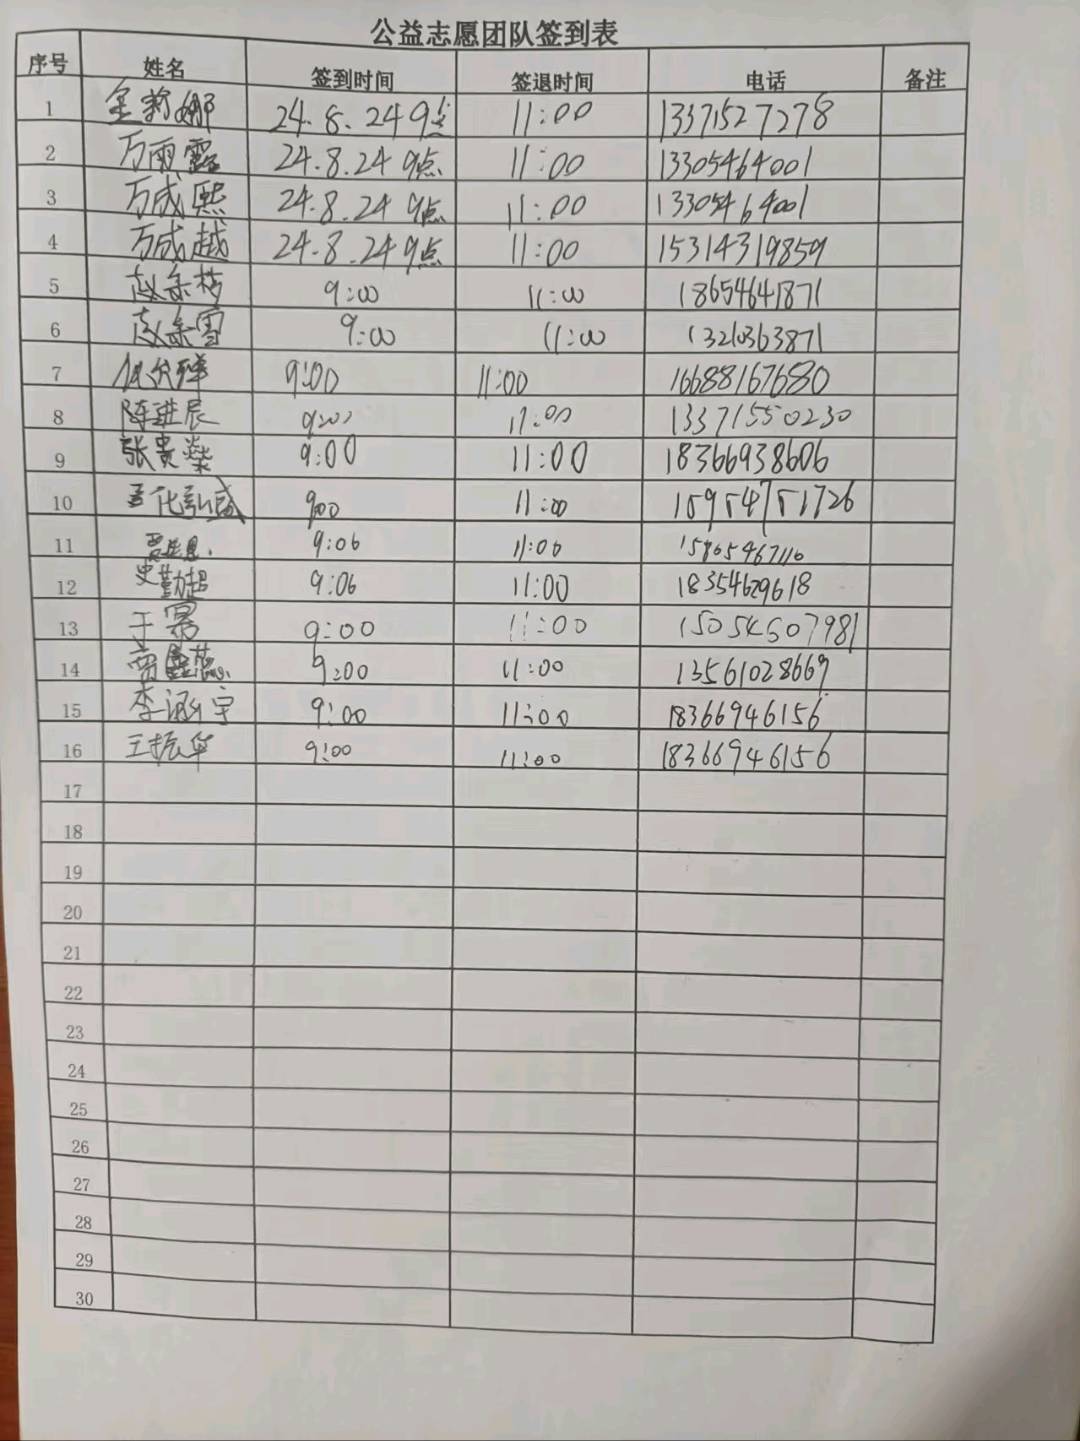 公益志愿团队签到表
序号 姓名 签到时间 签退时间 电话 备注
1 金莉娜 24.8.24 9点 11:00 13371527278
2 万雨露 24.8.24 9点 11:00 13305464001
3 万成熙 24.8.24 9点 11:00 13305464001
4 万成越 24.8.24 9点 11:00 15314319859
5 9:00 11:00 18654641871
6 9:00 11:00 13210363871
7 9:00 11:00 16688167680
8 陈进辰 9:00 11:00 13371550230
9 张贵燊 9:00 11:00 18366938606
10 9:00 11:00 15954751726
11 9:06 11:00 15865467110
12 史勤超 9:06 11:00 18354629618
13 于幂 9:00 11:00 15054507981
14 9:00 11:00 13561028669
15 李涵宇 9:00 11:00 18366946156
16 王振华 9:00 11:00 18366946156
17
18
19
20
21
22
23
24
25
26
27
28
29
30